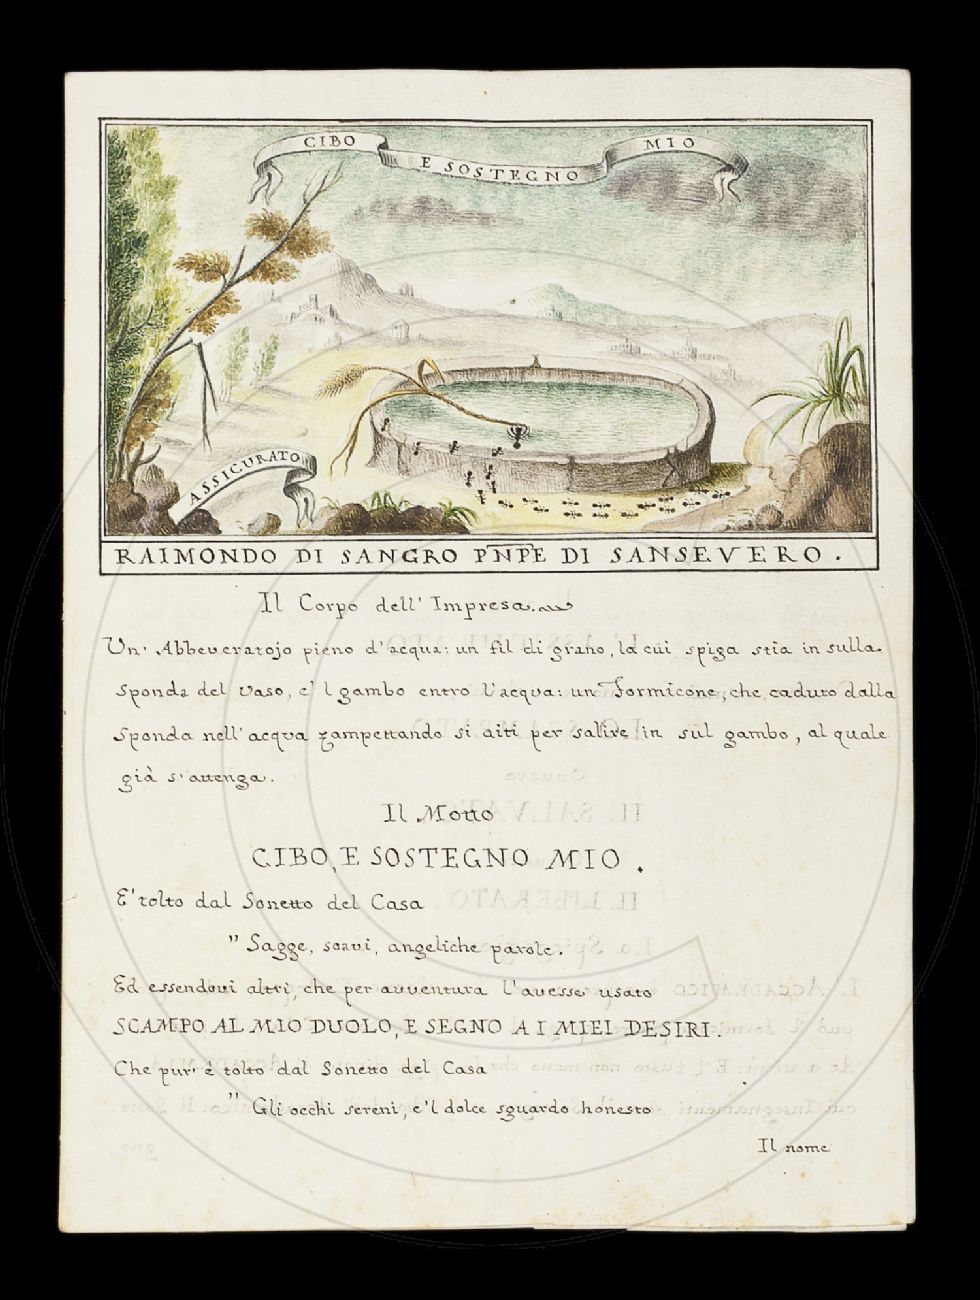 CIBO E SOSTEGNO MIO
ASSICURATO
RAIMONDO DI SANGRO PNPE DI SANSEVERO.
Il Corpo dell' Impresa.
Un' Abbeveratojo pieno d'acqua: un fil di grano, la cui spiga stia in sulla
sponda del vaso, e 'l gambo entro l'acqua: un Formicone, che caduto dalla
sponda nell'acqua zampettando si aiti per salire in sul gambo, al quale
già s'attenga.
Il Motto
CIBO, E SOSTEGNO MIO.
E' tolto dal Sonetto del Casa
" Sagge, soavi, angeliche parole.
Ed essendovi altri, che per avventura l'avesse usato
SCAMPO AL MIO DUOLO, E SEGNO A I MIEI DESIRI.
Che pur' è tolto dal Sonetto del Casa
" Gli occhi sereni, e 'l dolce sguardo honesto
Il nome